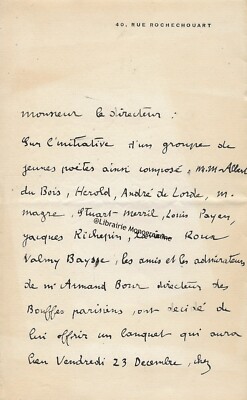 40, RUE ROCHECHOUART
Monsieur le directeur :
Sur l'initiative d'un groupe de
jeunes poètes ainsi composé, M.M. Albert
du Bois, Herold, André de Lorde, M.
magre, Stuart-Merril, Louis Payen,
@Librairie Monogramme
Jacques Richepin, Roux
Valmy Baysse, les amis et les admirateurs
de mr Armand Bour directeur des
Bouffes parisiens, ont décidé de
lui offrir un banquet qui aura
lieu Vendredi 23 Decembre, chez